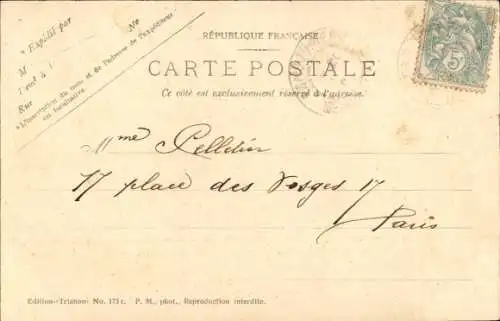 Expédié par
M
No
Rue
L'inscription du nom et de l'adresse de l'expéditeur
est facultative.
RÉPUBLIQUE FRANÇAISE
CARTE POSTALE
Ce côté est exclusivement réservé à l'adresse.
5
Mme Pelletier
17 place des Vosges 17
Paris
Edition "Trianon" No. 173 c. P. M., phot., Reproduction interdite.